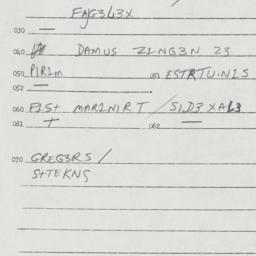 FAG3L3X
030 —
040 DAMUS Z1NG3N 23
050 P1R1M 051 ESTRTU.N1S
052 —
060 F1St MAR1N1RT / S1D3XAL3
061 + 062 —
070 GREG3RS /
S+TEKNS